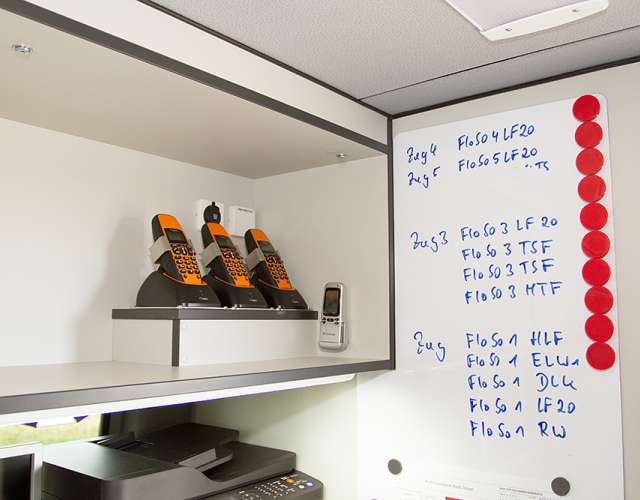 Zug 4 FloSo 4 LF 20
Zug 5 FloSo 5 LF 20
" TS
Zug 3 FloSo 3 LF 20
FloSo 3 TSF
FloSo 3 TSF
FloSo 3 MTF
Zug FloSo 1 HLF
FloSo 1 ELW1
FloSo 1 DLK
FloSo 1 LF 20
FloSo 1 RW